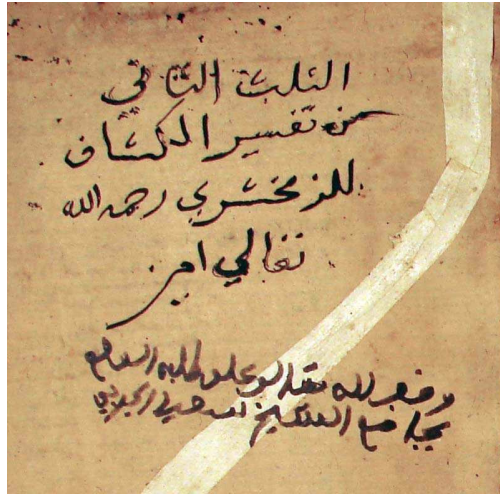 الثلث الثاني
من تفسير الكشاف
للزمخشري رحمه الله
تعالى امين
وقف لله تعالى على طلبة العلم
بجامع الشيخ